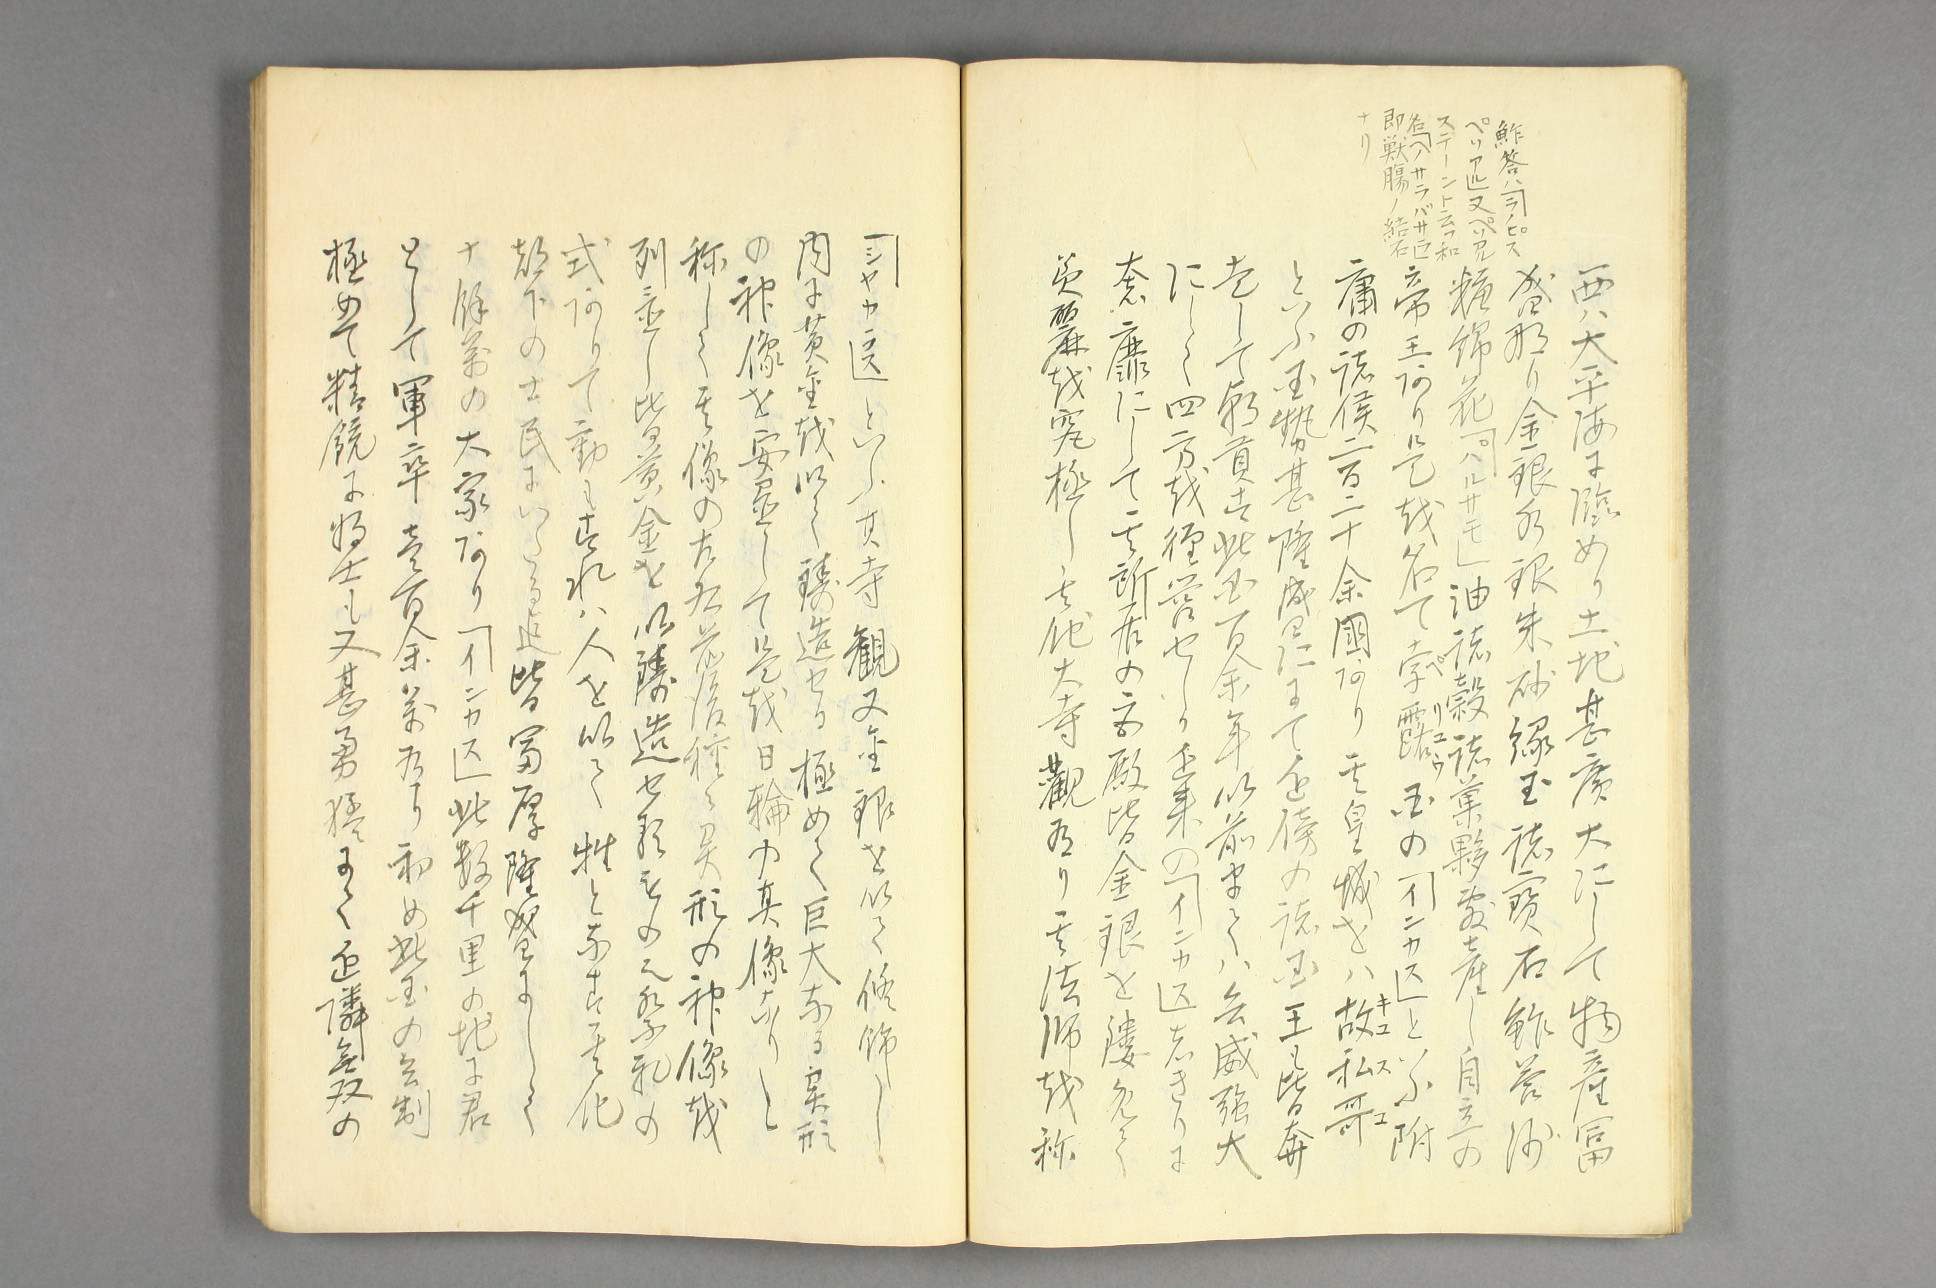 鮓答ハ「ラピス
ペリア』又ペリアル
ステーント云フ和
名「ヘイサラバサラ』
即獣腸ノ結石
ナリ
西ハ大平海に臨めり土地甚廣大にして物産冨
盛那り金銀水銀朱砂緑玉諸寶石鮓答沙
糖綿花「バルサモ」油諸穀諸菓夥敷産し自立の
帝王阿り是越名て孛露国の「インカス」といふ附
ペリユウ
庸の諸侯二百二十余國阿り其皇城をハ故私哥
キユスコ
といふ国勢甚隆盛にして近傍の諸国王も皆奔
走して朝貢す此国百余年以前まてハ兵威強大
にして四方越経営せしり近来の「インカス」志きりに
奢靡にして其所居の宮殿皆金銀を鏤免て
美麗越究極し其他大寺觀有り其法師越称
「シヤカ』といふ其寺觀又金銀を以て修飾し
内に黄金越以て鋳造せる極めて巨大なる異形
の神像を安置して是越日輪の真像なりと
称して其像の左右前後種々異形の神像越
列置し皆黄金を以鋳造せ程その元祭礼の
式阿りて動も須れハ人を以て牲となす其他
都下の士民にいたる迄皆冨厚隆盛にして
十餘萬の大家阿り「インカス」此数千里の地に君
として軍卒壱百余萬有り初め此国の兵制
極めて精鏡に将士も又甚勇猛にて近隣無双の